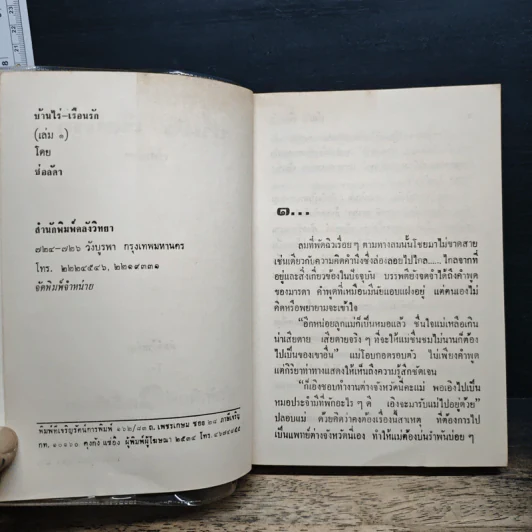 บ้านไร่-เรือนรัก
(เล่ม ๑)
โดย
ช่อลัดา
สำนักพิมพ์คลังวิทยา
๗๒๔-๗๒๖ วังบูรพา กรุงเทพมหานคร
โทร. ๒๒๒๔๕๔๖, ๒๒๑๙๓๓๑
จัดพิมพ์จำหน่าย
พิมพ์ที่เจริญรัตน์การพิมพ์ ๑๖๒/๘๓ ถ. เพชรเกษม ซอย ๒๘ ภาษีเจริญ
กท. ๑๐๑๖๐ ผู้พิมพ์ผู้โฆษณา ๒๕๓๔ โทร.
๑...
ลมที่พัดฉิวเรื่อย ๆ ตามทางลมนั้นโชยมาไม่ขาดสาย
เช่นเดียวกับความคิดคำนึงซึ่งล่องลอยไปไกล..... ไกลจากที่
อยู่และสิ่งเกี่ยวข้องในปัจจุบัน บรรพตียังจดจำได้ถึงคำพูด
ของมารดา คำพูดที่เหมือนมีนัยแอบแฝงอยู่ แต่ตนเองไม่
คิดหรือพยายามจะเข้าใจ
“อีกหน่อยลูกแม่ก็เป็นหมอแล้ว ชื่นใจแม่เหลือเกิน
น่าเสียดาย เสียดายจริง ๆ ที่จะให้แม่ชื่นชมไม่นานก็ต้อง
ไปเป็นของเขาอื่น” แม่โอบกอดรอบตัว ไม่เพียงคำพูด
แต่กิริยาท่าทางแสดงให้เห็นถึงความรู้สึกชัดเจน
“ก็เอิงชอบทำงานต่างจังหวัดนี่คะแม่ พอเอิงไปเป็น
หมอประจำที่พักอะไร ๆ ดี เอิงจะมารับแม่ไปอยู่ด้วย”
ปลอบแม่ ด้วยคิดว่าคงต้องเรื่องนี้สาเหตุ ที่ต้องการไป
เป็นแพทย์ต่างจังหวัดนี่เอง ทำให้แม่ต้องบ่นรำพันบ่อย ๆ